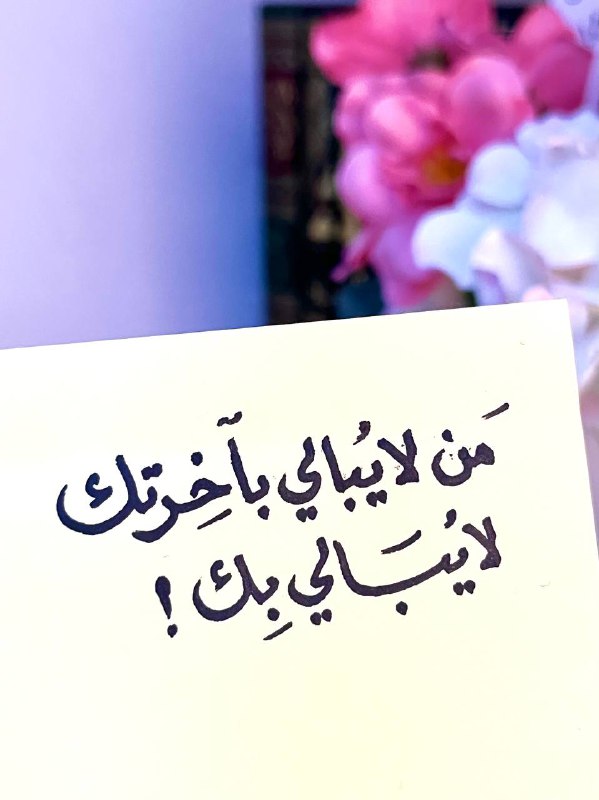 مَن لايُبالي بآخِرتك
لايُبَالي بِك !